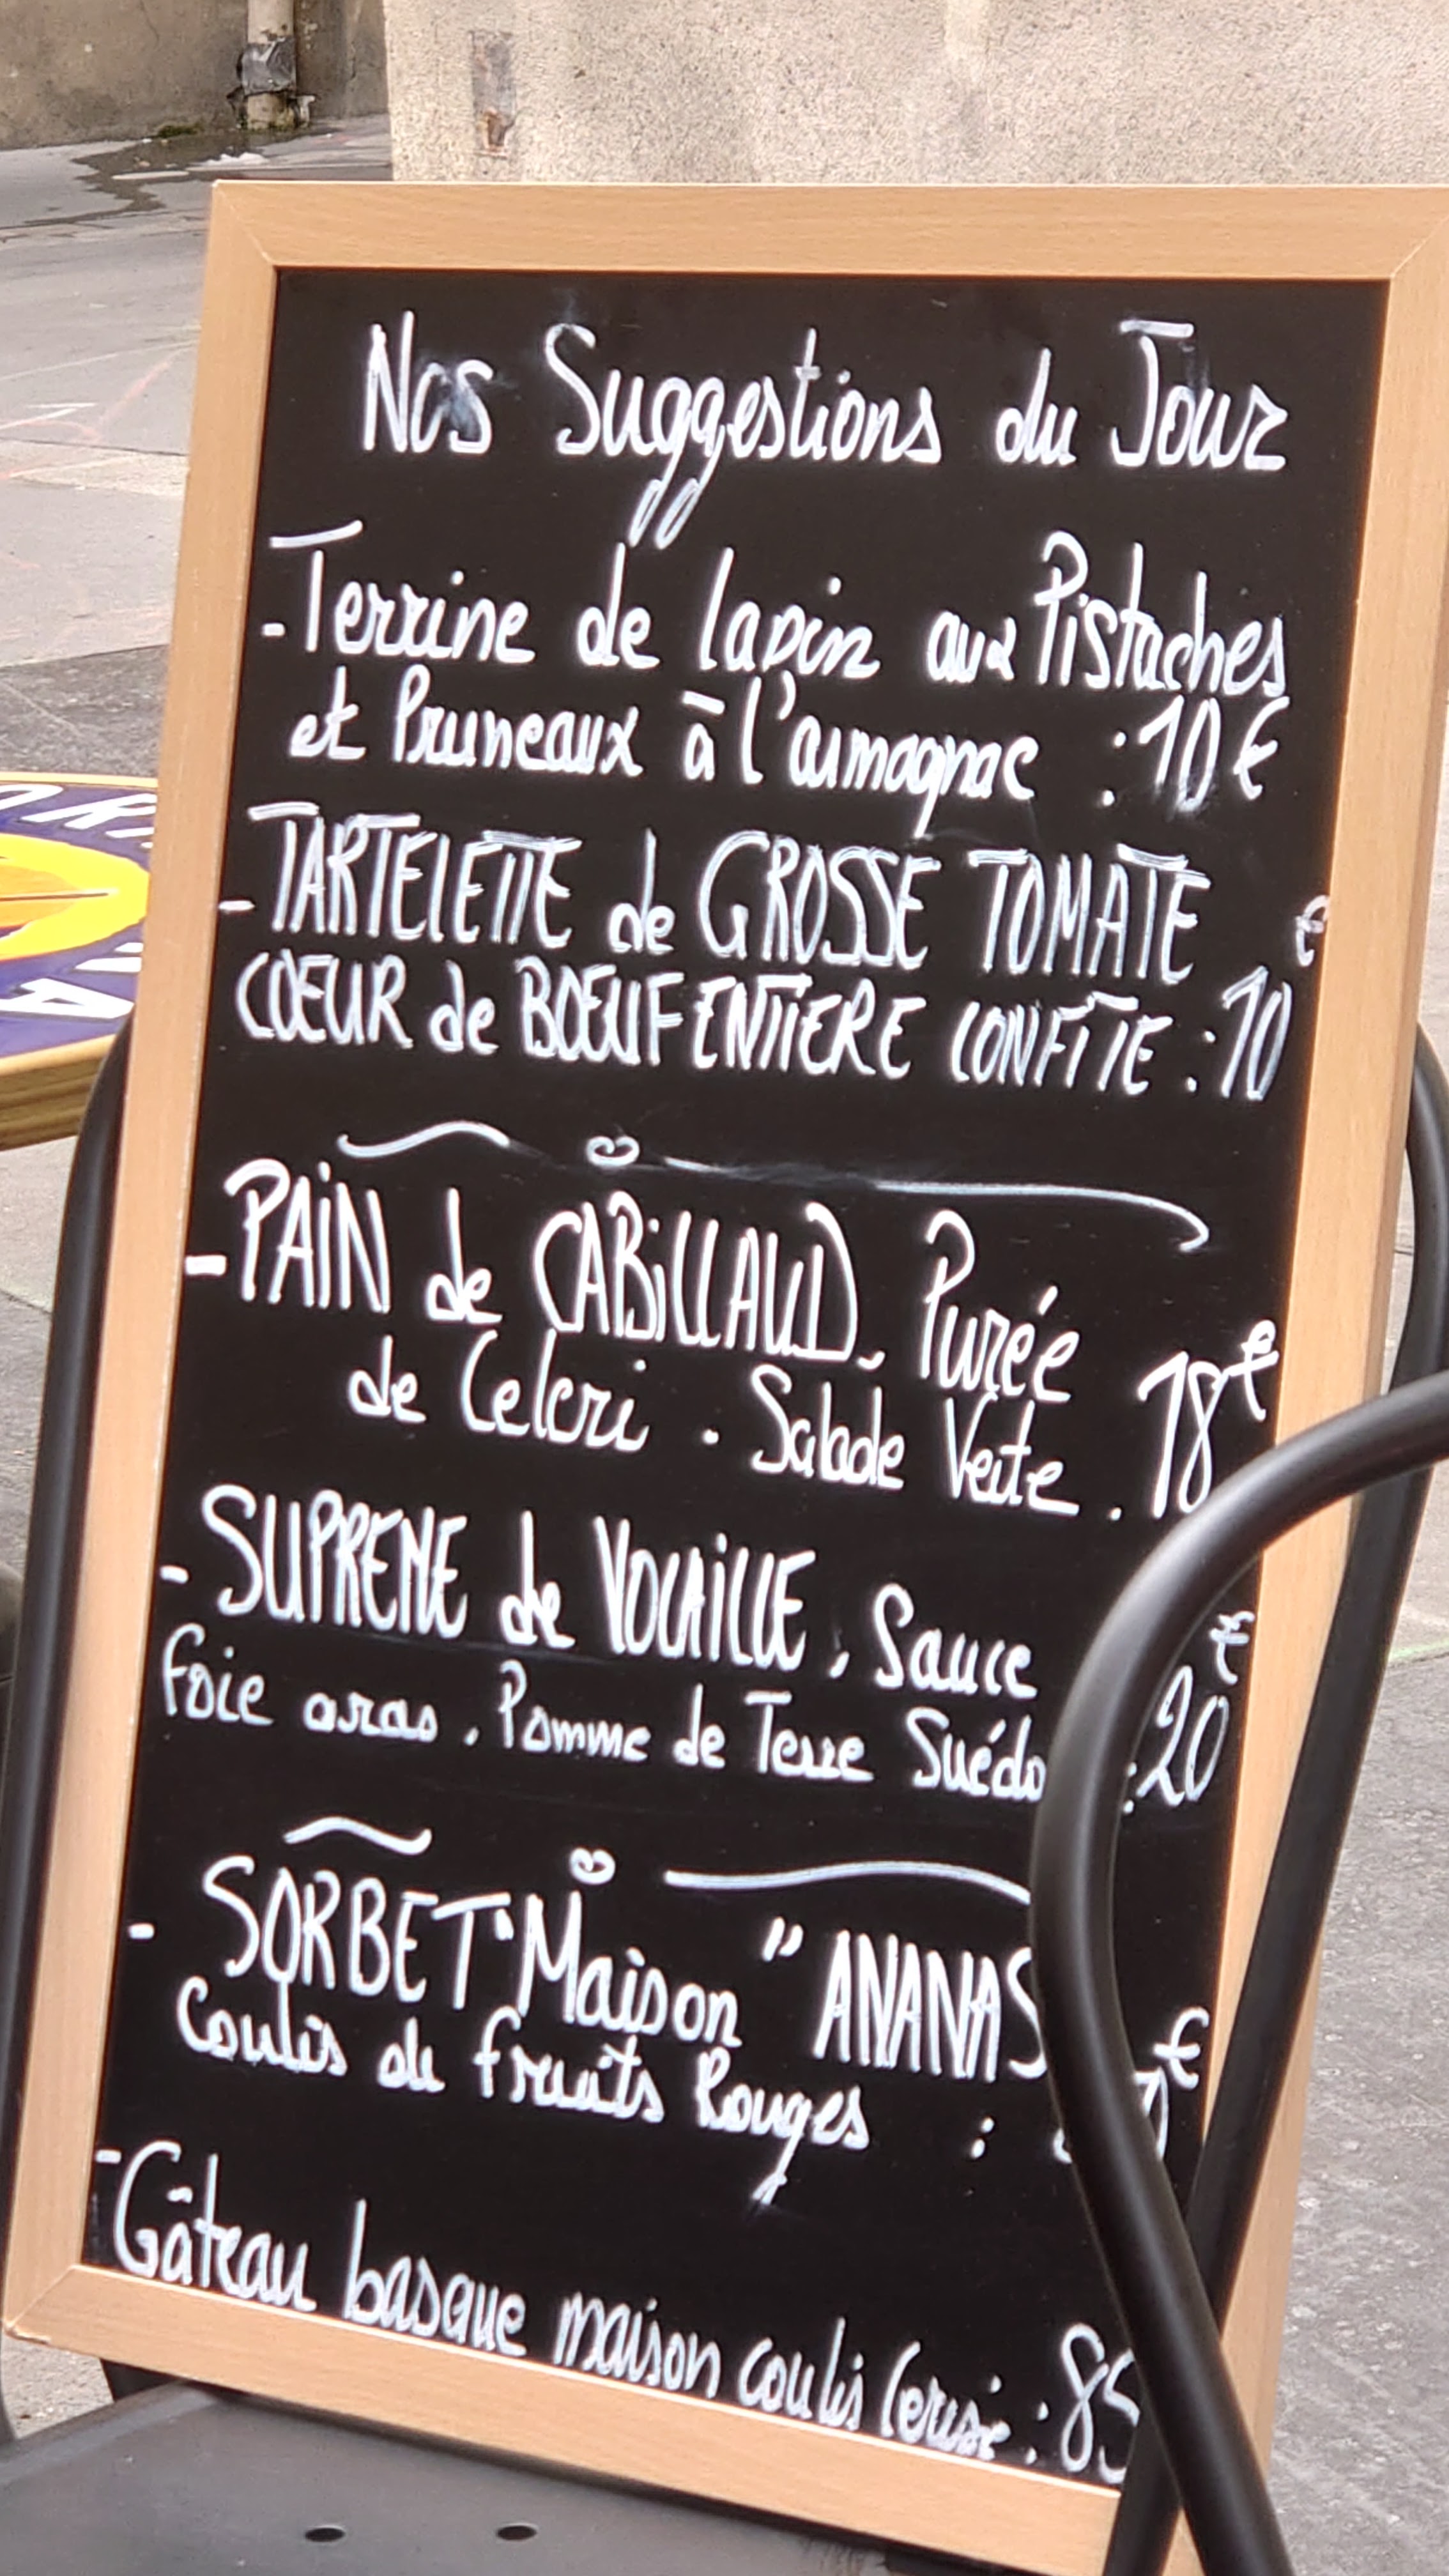 Nos Suggestions du Jour
- Terrine de lapin aux Pistaches
et Pruneaux à l'armagnac : 10 €
- TARTELETTE de GROSSE TOMATE €
COEUR de BOEUF ENTIERE CONFITE : 10
- PAIN de CABILLAUD, Purée
de Celeri . Salade Verte . 18 €
- SUPREME de VOLAILLE, Sauce €
Foie Gras . Pomme de Terre Suédo : 20
- SORBET "Maison" ANANAS €
Coulis de fruits Rouges :
- Gâteau basque maison coulis Cerise : 85